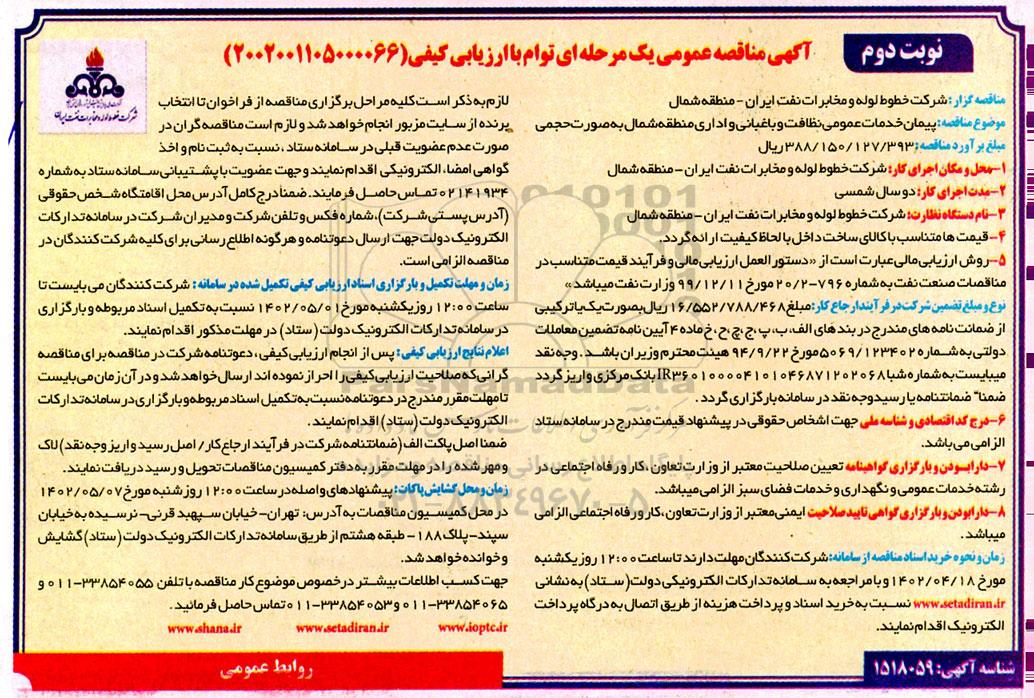 نوبت دوم
آگهی مناقصه عمومی یک مرحله ای توام با ارزیابی کیفی (۲۰۰۲۰۰۱۱۰۵۰۰۰۰۶۶)
شرکت خطوط لوله و مخابرات نفت ایران
مناقصه گزار: شرکت خطوط لوله و مخابرات نفت ایران - منطقه شمال
موضوع مناقصه: پیمان خدمات عمومی نظافت و باغبانی و اداری منطقه شمال به صورت حجمی
مبلغ برآورد مناقصه: ۳۸۸/۱۵۰/۱۲۷/۳۹۳ ریال
۱-محل و مکان اجرای کار: شرکت خطوط لوله و مخابرات نفت ایران - منطقه شمال
۲-مدت اجرای کار: دو سال شمسی
۳-نام دستگاه نظارت: شرکت خطوط لوله و مخابرات نفت ایران - منطقه شمال
۴- قیمت ها متناسب با کالای ساخت داخل با لحاظ کیفیت ارائه گردد.
۵-روش ارزیابی مالی عبارت است از «دستورالعمل ارزیابی مالی و فرآیند قیمت متناسب در
مناقصات صنعت نفت به شماره ۷۹۶-۲۰/۲ مورخ ۹۹/۱۲/۱۱ وزارت نفت میباشد»
نوع و مبلغ تضمین شرکت در فرآیند ارجاع کار: مبلغ ۱۶/۵۵۲/۷۸۸/۴۶۸ ریال بصورت یک یا ترکیبی
از ضمانت نامه های مندرج در بند های الف، ب، پ، ج، چ، ح، خ ماده ۴ آیین نامه تضمین معاملات
دولتی به شماره ۱۲۳۴۰۲/ت۵۰۶۹ مورخ ۹۴/۹/۲۲ هیئت محترم وزیران باشد. وجه نقد
میبایست به شماره شبا IR۳۶۰۱۰۰۰۰۴۱۰۱۰۴۶۸۷۱۲۰۲۰۶۸ بانک مرکزی واریز گردد
ضمنا" ضمانتنامه یا رسید وجه نقد در سامانه بارگزاری گردد.
۶-درج کد اقتصادی و شناسه ملی جهت اشخاص حقوقی در پیشنهاد قیمت مندرج در سامانه ستاد
الزامی می باشد.
۷-دارا بودن و بارگزاری گواهینامه تعیین صلاحیت معتبر از وزارت تعاون، کار و رفاه اجتماعی در
رشته خدمات عمومی و نگهداری و خدمات فضای سبز الزامی میباشد.
۸-دارا بودن و بارگزاری گواهی تایید صلاحیت ایمنی معتبر از وزارت تعاون، کار و رفاه اجتماعی الزامی
میباشد.
زمان و نحوه خرید اسناد مناقصه از سامانه: شرکت کنندگان مهلت دارند تا ساعت ۱۲:۰۰ روز یکشنبه
مورخ ۱۴۰۲/۰۴/۱۸ و با مراجعه به سامانه تدارکات الکترونیکی دولت (ستاد) به نشانی
www.setadiran.ir نسبت به خرید اسناد و پرداخت هزینه از طریق اتصال به درگاه پرداخت
الکترونیک اقدام نمایند.
لازم به ذکر است کلیه مراحل برگزاری مناقصه از فراخوان تا انتخاب
برنده از سایت مزبور انجام خواهد شد و لازم است مناقصه گران در
صورت عدم عضویت قبلی در سامانه ستاد، نسبت به ثبت نام و اخذ
گواهی امضاء الکترونیکی اقدام نمایند و جهت عضویت با پشتیبانی سامانه ستاد به شماره
۰۲۱۴۱۹۳۴ تماس حاصل فرمایند. ضمنا درج کامل آدرس محل اقامتگاه شخص حقوقی
(آدرس پستی شرکت)، شماره فکس و تلفن شرکت و مدیران شرکت در سامانه تدارکات
الکترونیک دولت جهت ارسال دعوتنامه و هرگونه اطلاع رسانی برای کلیه شرکت کنندگان در
مناقصه الزامی است.
زمان و مهلت تکمیل و بارگزاری اسناد ارزیابی کیفی تکمیل شده در سامانه: شرکت کنندگان می بایست تا
ساعت ۱۲:۰۰ روز یکشنبه مورخ ۱۴۰۲/۰۵/۰۱ نسبت به تکمیل اسناد مربوطه و بارگزاری
در سامانه تدارکات الکترونیک دولت (ستاد) در مهلت مذکور اقدام نمایند.
اعلام نتایج ارزیابی کیفی: پس از انجام ارزیابی کیفی، دعوتنامه شرکت در مناقصه برای مناقصه
گرانی که صلاحیت ارزیابی کیفی را احراز نموده اند ارسال خواهد شد و در آن زمان می بایست
تا مهلت مقرر مندرج در دعوتنامه نسبت به تکمیل اسناد مربوطه و بارگزاری در سامانه تدارکات
الکترونیک دولت (ستاد) اقدام نمایند.
ضمنا اصل پاکت الف (ضمانتنامه شرکت در فرآیند ارجاع کار / اصل رسید واریز وجه نقد) لاک
و مهر شده را در مهلت مقرر به دفتر کمیسیون مناقصات تحویل و رسید دریافت نمایند.
زمان و محل گشایش پاکات: پیشنهادهای واصله در ساعت ۱۲:۰۰ روز شنبه مورخ ۱۴۰۲/۰۵/۰۷
در محل کمیسیون مناقصات به آدرس: تهران- خیابان سپهبد قرنی- نرسیده به خیابان
سپند- پلاک ۱۸۸- طبقه هشتم از طریق سامانه تدارکات الکترونیک دولت (ستاد) گشایش
و خوانده خواهد شد.
جهت کسب اطلاعات بیشتر درخصوص موضوع کار مناقصه با تلفن ۳۳۸۵۴۰۵۵-۰۱۱ و
۳۳۸۵۴۰۶۵-۰۱۱ و ۳۳۸۵۴۰۵۳-۰۱۱ تماس حاصل فرمائید.
www.ioptc.ir www.setadiran.ir www.shana.ir
شناسه آگهی: ۱۵۱۸۰۵۹
روابط عمومی
ParsNamadData
۰۲۱-۸۸۳۴۹۶۷۰-۵